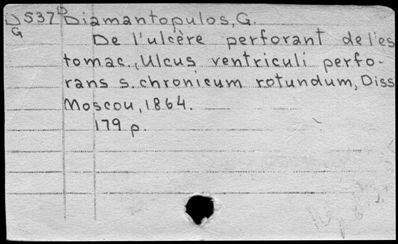 J537D Diamantopulos, G.
G
De l'ulcère perforant de l'es
tomac., Ulcus ventriculi perfo-
rans s. chronicum rotundum, Diss
Moscou, 1864.
179 p.